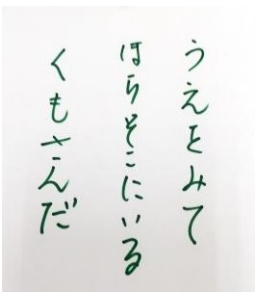 うえをみて
ほらそこにいる
くもさんだ